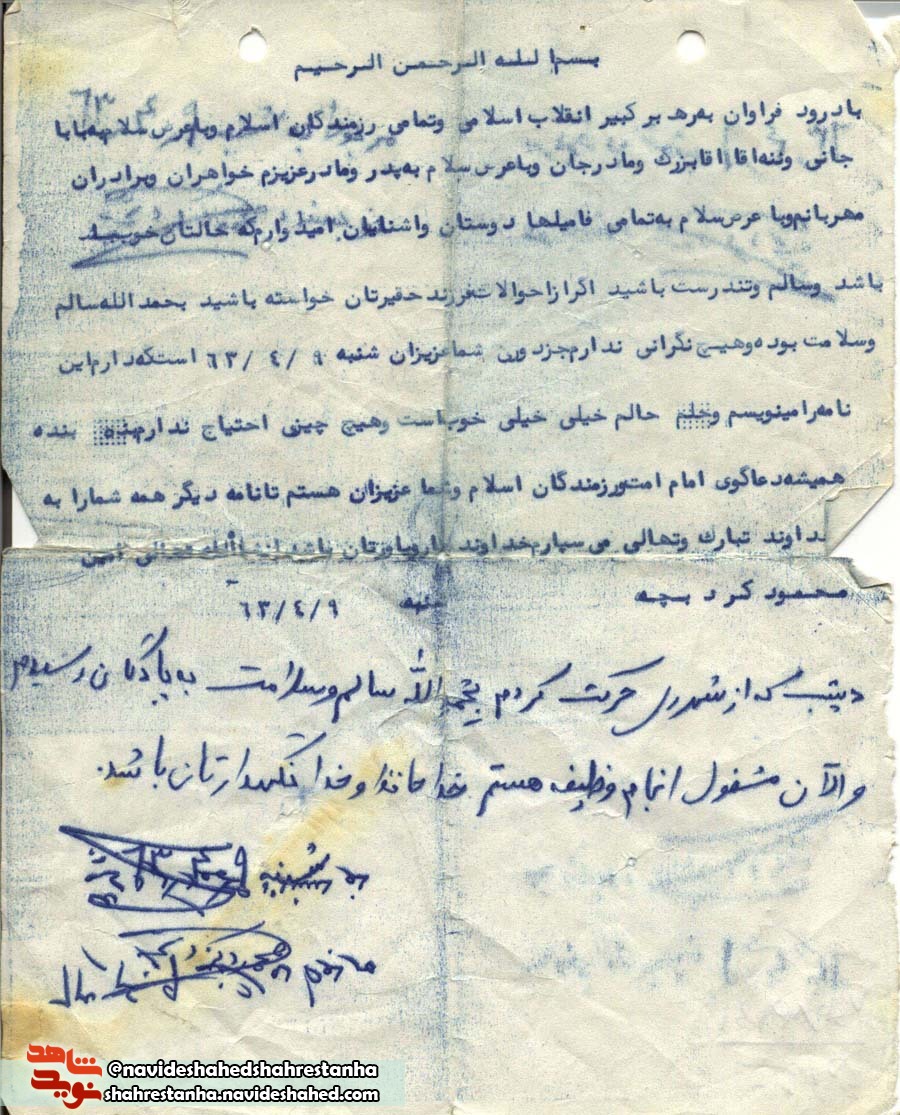 بسم الله الرحمن الرحیم
بادرود فراوان به رهبر کبیر انقلاب اسلامی وتمامی رزمندگان اسلام وباعرض سلام به بابا
جانی وننه اقا اقابزرک ومادرجان وباعرض سلام به پدر ومادرعزیزم خواهران وبرادران
مهربانم وبا عرض سلام به تمامی فامیلها دوستان واشنایان امیدوارم که حالتان خوب
باشد وسالم وتندرست باشید اگر از احوالات فرزند حقیرتان خواسته باشید بحمدالله سالم
وسلامت بوده وهیچ نگرانی ندارم جز دوری شماعزیزان شنبه ۶۳/۴/۹ است که دارم این
نامه رامینویسم وحالم خیلی خیلی خوب است وهیچ چیزی احتیاج ندارم بنده
همیشه دعاگوی امام امت ورزمندگان اسلام وشما عزیزان هستم تانامه دیگر همه شمارا به
داوند تبارک وتعالی می سپارم خداوند یاروياورتان باشد انشاالله تعالی امین
محمود کرد بچه شنبه ۶۳/۴/۹
دیشب که از شهرری حرکت کردم بحمدالله سالم وسلامت به پادگان رسیدم
و الآن مشغول انجام وظیفه هستم خداحافظ و خدا نگهدارتان باشد.
شنبه
@navideshahedshahrestanha
shahrestanha.navideshahed.com
نوید شاهد